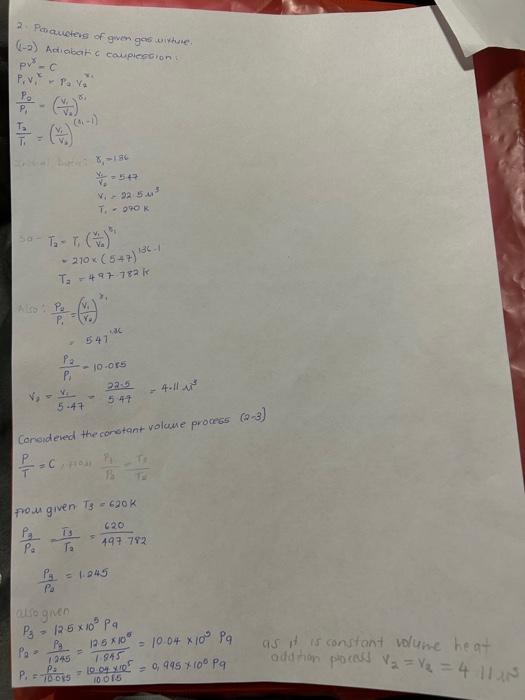 2. Parameters of given gas mixture.
(1-2) Adiabatic compression:
PV^γ = C
P₁V₁^γ₁ = P₂V₂^γ₁
P₂/P₁ = (V₁/V₂)^γ₁
T₂/T₁ = (V₁/V₂)^(γ₁-1)
γ₁ = 1.36
V₁/V₂ = 5.47
V₁ = 22.5 m³
T₁ = 270 K
So - T₂ = T₁ (V₁/V₂)^γ₁
= 270 × (5.47)^1.36-1
T₂ = 497.782 K
Also: P₂/P₁ = (V₁/V₂)^γ₁
= 5.47^1.36
P₂/P₁ = 10.085
V₂ = V₁/5.47 = 22.5/5.47 = 4.11 m³
Considered the constant volume process (2-3)
P/T = C, from P₃/P₂ = T₃/T₂
from given T₃ = 620 K
P₃/P₂ = T₃/T₂ = 620/497.782
P₃/P₂ = 1.245
also given
P₃ = 12.5 × 10⁵ Pa
P₂ = P₃/1.245 = 12.5 × 10⁵/1.245 = 10.04 × 10⁵ Pa
P₁ = P₂/10.085 = 10.04 × 10⁵/10.085 = 0,995 × 10⁵ Pa
as it is constant volume heat
addition process V₂ = V₂ = 4.11 m³